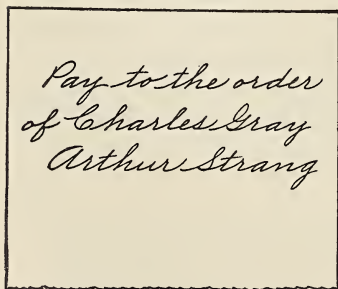 Pay to the order
of Charles Gray
Arthur Strang